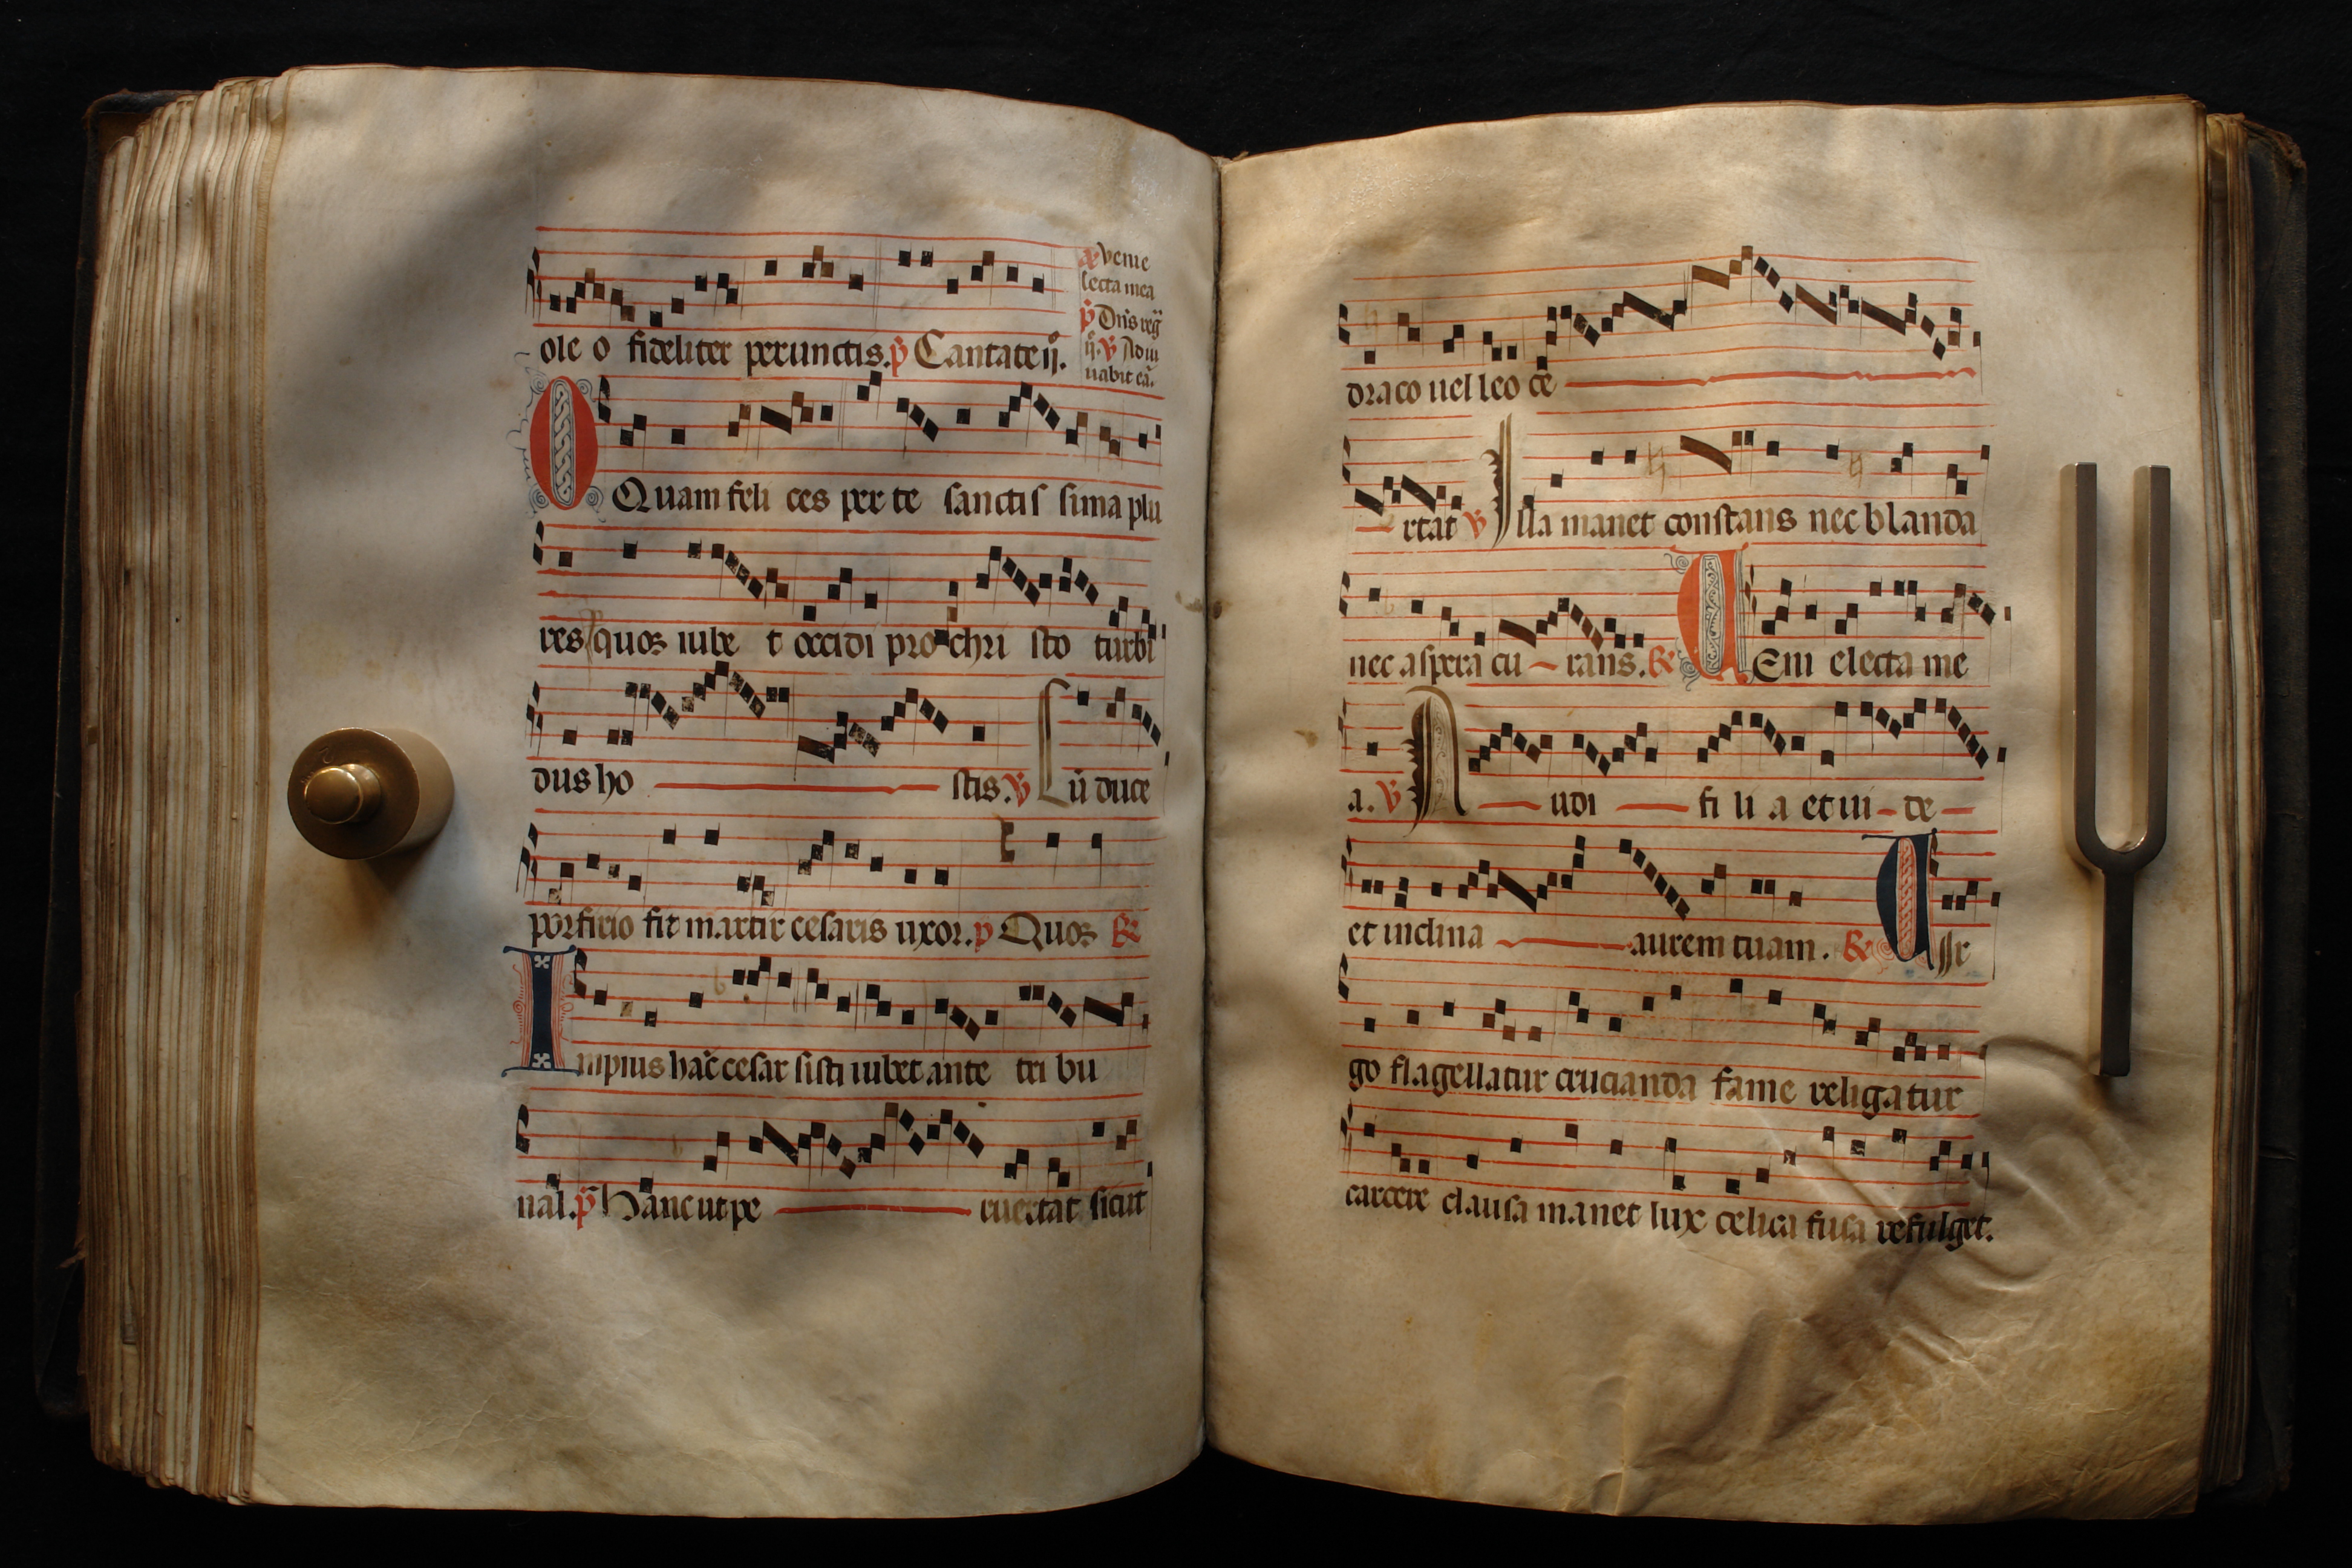 ole o fideliter perunctis. p̄ Cantate ij.
℟ Veni e
lecta mea
p̄ Dn̄s reḡ
ij. ℣ Adiu
uabit eā.
O Quam feli ces per te sanctis sima plu
res quos iube t occidi pro chri sto turbi
dus ho stis. ℣ Cū duce
porfirio fit martir cesaris uxor. p̄ Quos ℟
Impius hāc cesar sisti iubet ante tri bu
nal. p̄ Hanc ut pe ruertat sicut
draco uel leo ce
rtat ℣ Illa manet constans nec blanda
nec aspera cu rans. ℟ VEni electa me
a. ℣ Audi fi li a et ui de
et inclina aurem tuam. ℟ Vir
go flagellatur crucianda fame religatur
carcere clausa manet lux celica fusa refulget.